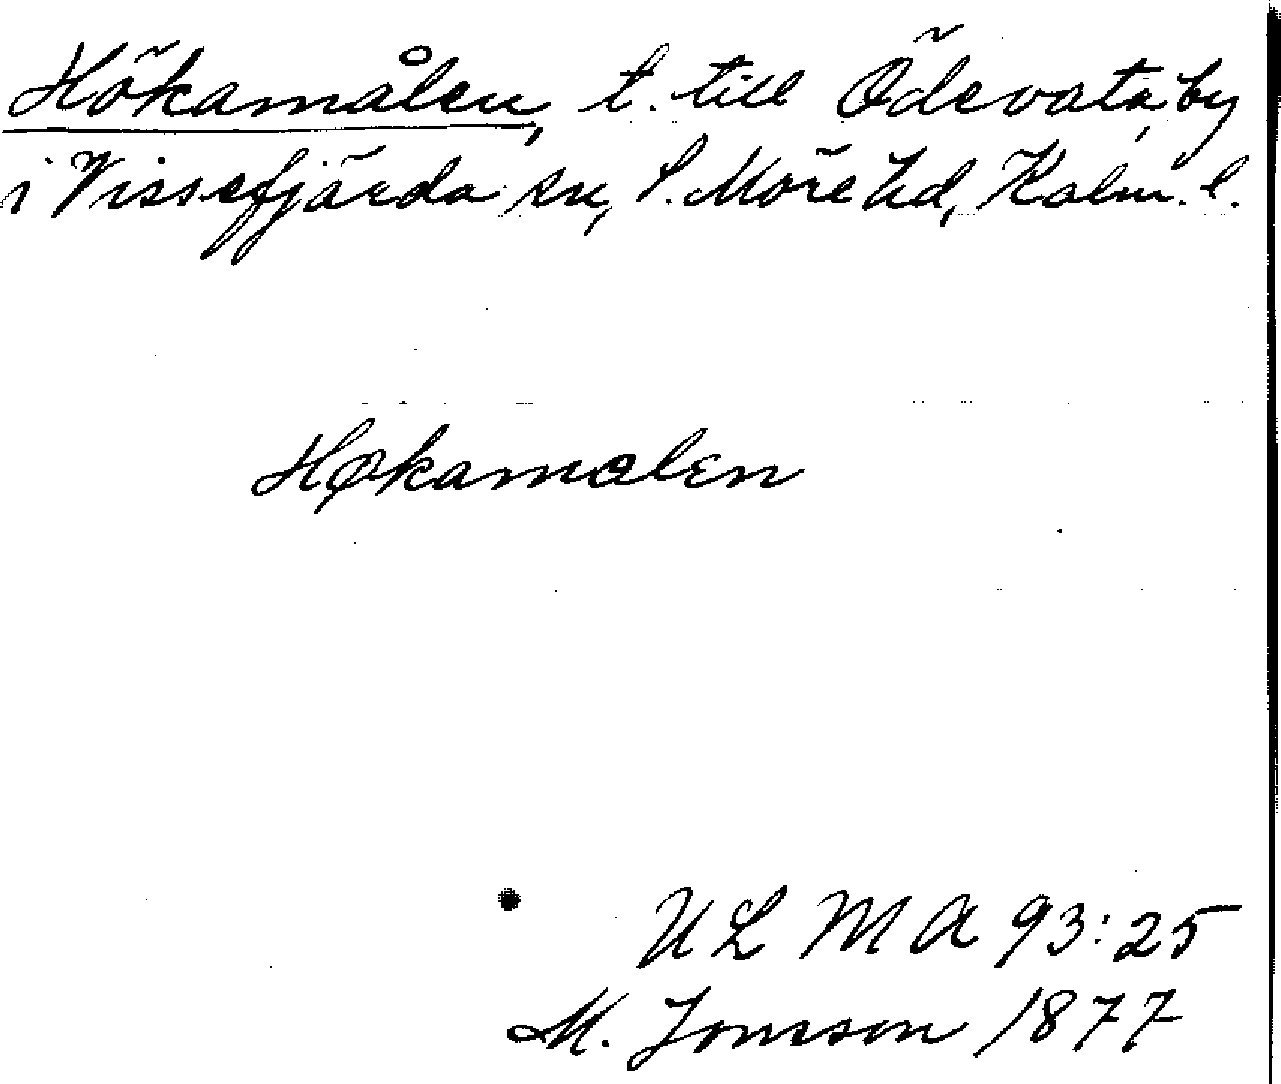 Hökamålen, t. till Ödevata, by
i Vissefjärda sn, S. Möre hd, Kalm. l.
Høkamalen
ULMA 93:25
M. Jonsson 1877